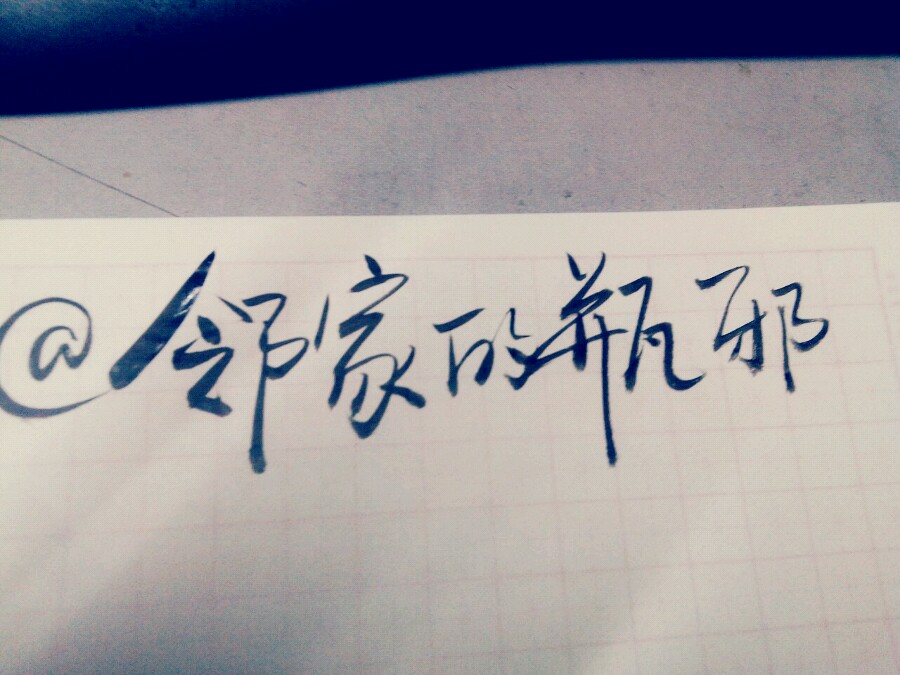 @邻家的瓶邪